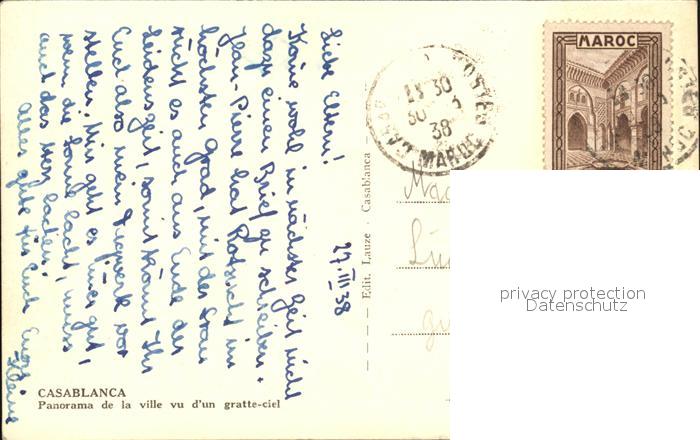 27. III 38
Liebe Eltern!
Komme wohl in nächster Zeit nicht
dazu einen Brief zu schreiben.
Jean-Pierre hat Rotsucht im
höchsten Grad, mit der Frau
rückt es auch ans Ende der
Leidenszeit, somit könnt Ihr
Euch also mein vor
stellen. Mir geht es immer gut,
wenn die Sonne lacht, muss
auch das Herz lachen.
Alles gute für Euch Eure
Kleine
CASABLANCA
Panorama de la ville vu d'un gratte-ciel
Edit. Lauze · Casablanca
POSTES
18 30
30 3
38
MAROC
MAROC
privacy protection
Datenschutz